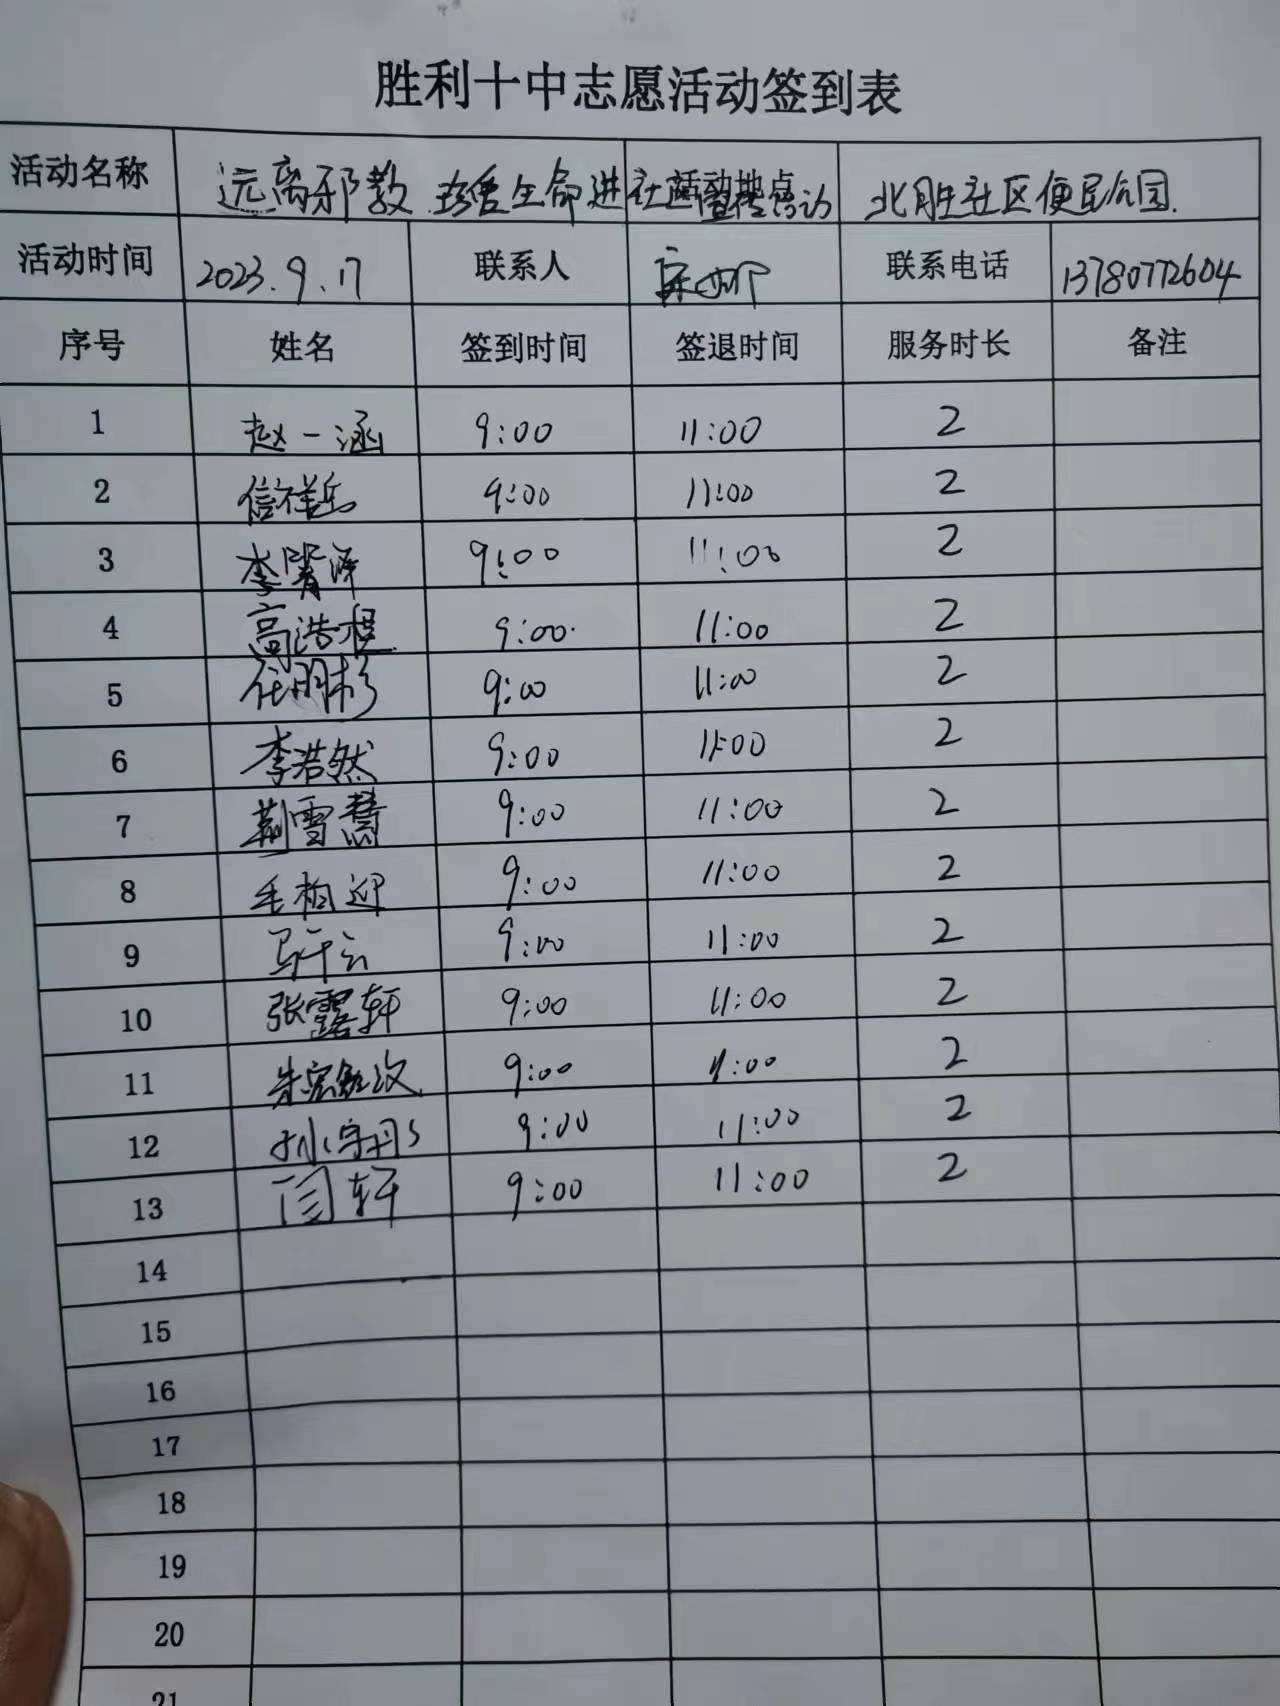 胜利十中志愿活动签到表
活动名称 远离邪教 珍惜生命进社区宣传活动 活动地点 北胜社区便民公园.
活动时间 2023.9.17 联系人 联系电话 13780772604
序号 姓名 签到时间 签退时间 服务时长 备注
1 赵一涵 9:00 11:00 2
2 信祥岳 9:00 11:00 2
3 李胥泽 9:00 11:00 2
4 高浩程 9:00 11:00 2
5 任明杉 9:00 11:00 2
6 李浩然 9:00 11:00 2
7 荆雪慧 9:00 11:00 2
8 毛柏迎 9:00 11:00 2
9 9:00 11:00 2
10 张露轩 9:00 11:00 2
11 9:00 11:00 2
12 9:00 11:00 2
13 闫轩 9:00 11:00 2
14
15
16
17
18
19
20
21